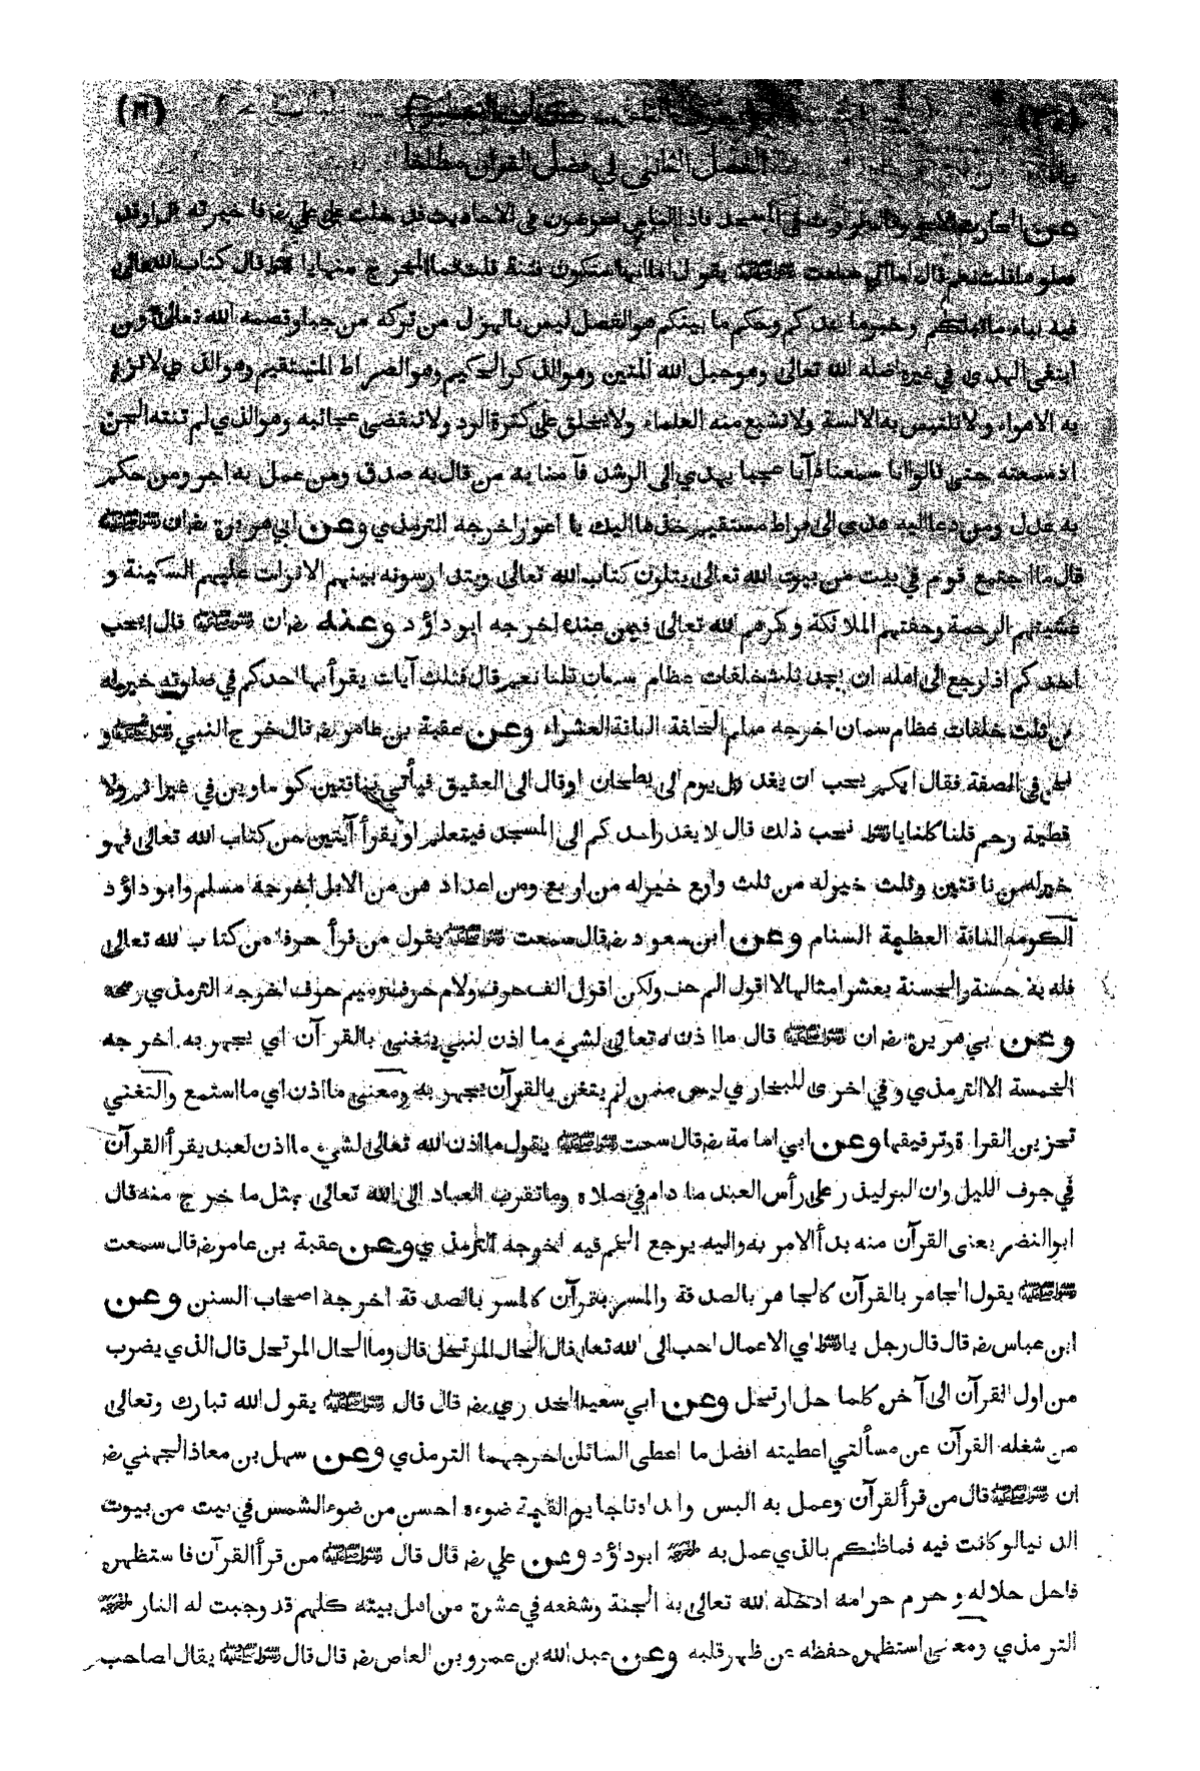 الفصل الثاني في فضل القرآن مطلقا
وعن الحارث قال في المسجد فاذا الناس يخوضون في الاحاديث فدخلت على علي رض فاخبرته قال اوقد
فعلوها قلت نعم قال اما اني سمعت ﷺ يقول الا انها ستكون فتنة قلت فما المخرج منها يا قال كتاب الله تعالى
فيه نبأ ما قبلكم وخبر ما بعدكم وحكم ما بينكم هو الفصل ليس بالهزل من تركه من جبار قصمه الله تعالى ومن
ابتغى الهدى في غيره اضله الله تعالى وهو حبل الله المتين وهو الذكر الحكيم وهو الصراط المستقيم وهو الذي لا تزيغ
به الاهواء ولا تلتبس به الالسنة ولا تشبع منه العلماء ولا يخلق على كثرة الرد ولا تنقضى عجائبه وهو الذي لم تنته الجن
اذ سمعته حتى قالوا انا سمعنا قرآنا عجبا يهدي الى الرشد فآمنا به من قال به صدق ومن عمل به اجر ومن حكم
به عدل ومن دعا اليه هدى الى صراط مستقيم خذها اليك يا اعور اخرجه الترمذي وعن ابي هريرة رض ان ﷺ
قال ما اجتمع قوم في بيت من بيوت الله تعالى يتلون كتاب الله تعالى ويتدارسونه بينهم الا نزلت عليهم السكينة و
غشيتهم الرحمة وحفتهم الملائكة وذكرهم الله تعالى فيمن عنده اخرجه ابو داؤد وعنه رض ان ﷺ قال ايحب
احدكم اذا رجع الى اهله ان يجد ثلث خلفات عظام سمان قلنا نعم قال فثلث آيات يقرأ بها احدكم في صلوته خير له
من ثلث خلفات عظام سمان اخرجه مسلم الخلفة الناقة العشراء وعن عقبة بن عامر رض قال خرج النبي ﷺ و
في الصفة فقال ايكم يحب ان يغد كل يوم الى بطحان او قال الى العقيق فيأتي بناقتين كوماوين في غير اثم ولا
قطيعة رحم قلنا كلنا يا نحب ذلك قال لا يغد احدكم الى المسجد فيتعلم او يقرأ آيتين من كتاب الله تعالى فهو
خير له من ناقتين وثلث خير له من ثلث واربع خير له من اربع ومن اعدادهن من الابل اخرجه مسلم وابو داؤد
الكومه الناقة العظيمة السنام وعن ابن مسعود رض قال سمعت ﷺ يقول من قرأ حرفا من كتاب الله تعالى
فله به حسنة والحسنة بعشر امثالها لا اقول الم حرف ولكن اقول الف حرف ولام حرف وميم حرف اخرجه الترمذي وصححه
وعن ابي هريرة رض ان ﷺ قال ما اذن الله تعالى لشيء ما اذن لنبي يتغنى بالقرآن اي يجهر به اخرجه
الخمسة الا الترمذي وفي اخرى للبخاري ليس منا من لم يتغن بالقرآن يجهر به ومعنى ما اذن اي ما استمع والتغني
تحزين القراءة وترقيقها وعن ابي امامة رض قال سمعت ﷺ يقول ما اذن الله تعالى لشيء ما اذن لعبد يقرأ القرآن
في جوف الليل وان البر ليذر على رأس العبد ما دام في صلاه وما تقرب العباد الى الله تعالى بمثل ما خرج منه قال
ابو النضر يعنى القرآن منه بدأ الامر به واليه يرجع الحكم فيه اخرجه الترمذي وعن عقبة بن عامر رض قال سمعت
ﷺ يقول الجاهر بالقرآن كالجاهر بالصدقة والمسر بقرآن كالمسر بالصدقة اخرجه اصحاب السنن وعن
ابن عباس رض قال قال رجل يا اي الاعمال احب الى الله تعالى قال الحال المرتحل قال وما الحال المرتحل قال الذي يضرب
من اول القرآن الى آخره كلما حل ارتحل وعن ابي سعيد الخدري رض قال قال ﷺ يقول الله تبارك وتعالى
من شغله القرآن عن مسألتي اعطيته افضل ما اعطى السائلن اخرجهما الترمذي وعن سهل بن معاذ الجهني رض
ان ﷺ قال من قرأ القرآن وعمل به البس والداه تاجا يوم القيمة ضوءه احسن من ضوء الشمس في بيت من بيوت
الدنيا لو كانت فيه فما ظنكم بالذي عمل به ابو داؤد وعن علي رض قال قال ﷺ من قرأ القرآن فاستظهره
فاحل حلاله وحرم حرامه ادخله الله تعالى به الجنة وشفعه في عشرة من اهل بيته كلهم قد وجبت له النار
الترمذي ومعنى استظهره حفظه عن ظهر قلبه وعن عبد الله بن عمرو بن العاص رض قال قال ﷺ يقال لصاحب